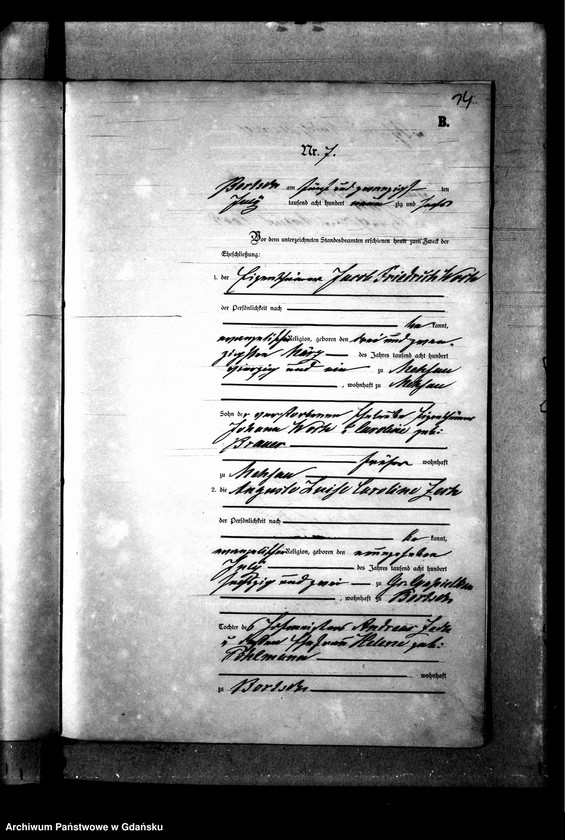 14.
B.
Nr. 7.
Bortsch am fünf und zwanzigst ten
July tausend acht hundert neun zig und sechs
Vor dem unterzeichneten Standesbeamten erschienen heute zum Zweck der
Eheschließung:
1. der Eigenthümer Jacob Friedrich
der Persönlichkeit nach
be kannt,
evangelischer Religion, geboren den drei und zwan-
zigsten März des Jahres tausend acht hundert
vierzig und ein zu Mehsau
, wohnhaft zu Mehsau
Sohn der verstorbenen Eheleute Eigenthümer
Johann Caroline geb:
Brauer
früher wohnhaft
zu Mehsau
2. die Auguste Luise Caroline
der Persönlichkeit nach
be kannt,
evangelischer Religion, geboren den
July des Jahres tausend acht hundert
und zwei zu
, wohnhaft zu Bortsch
Tochter des Andreas
u dessen Ehefrau Helene geb:
Pohlmann
wohnhaft
zu Bortsch
Archiwum Państwowe w Gdańsku